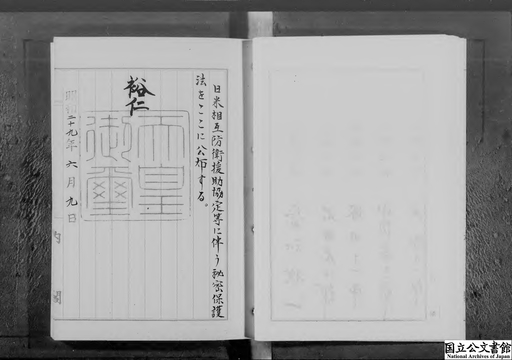 日米相互防衛援助協定等に伴う秘密保護
法をここに公布する。
裕仁
天皇
御璽
昭和二十九年六月九日
内閣
国立公文書館
National Archives of Japan